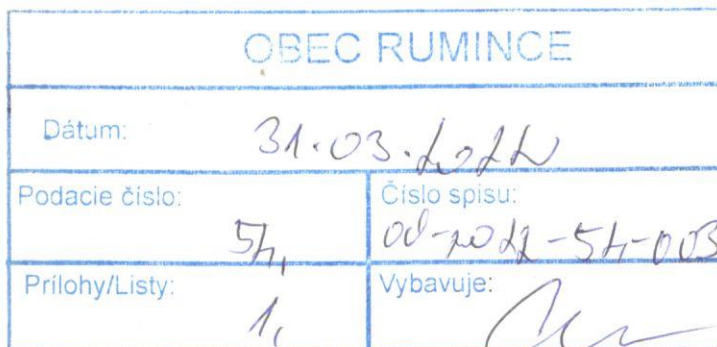 OBEC RUMINCE
Dátum: 31.03.2022
Podacie číslo: Číslo spisu:
54,
Prílohy/Listy: Vybavuje:
1,